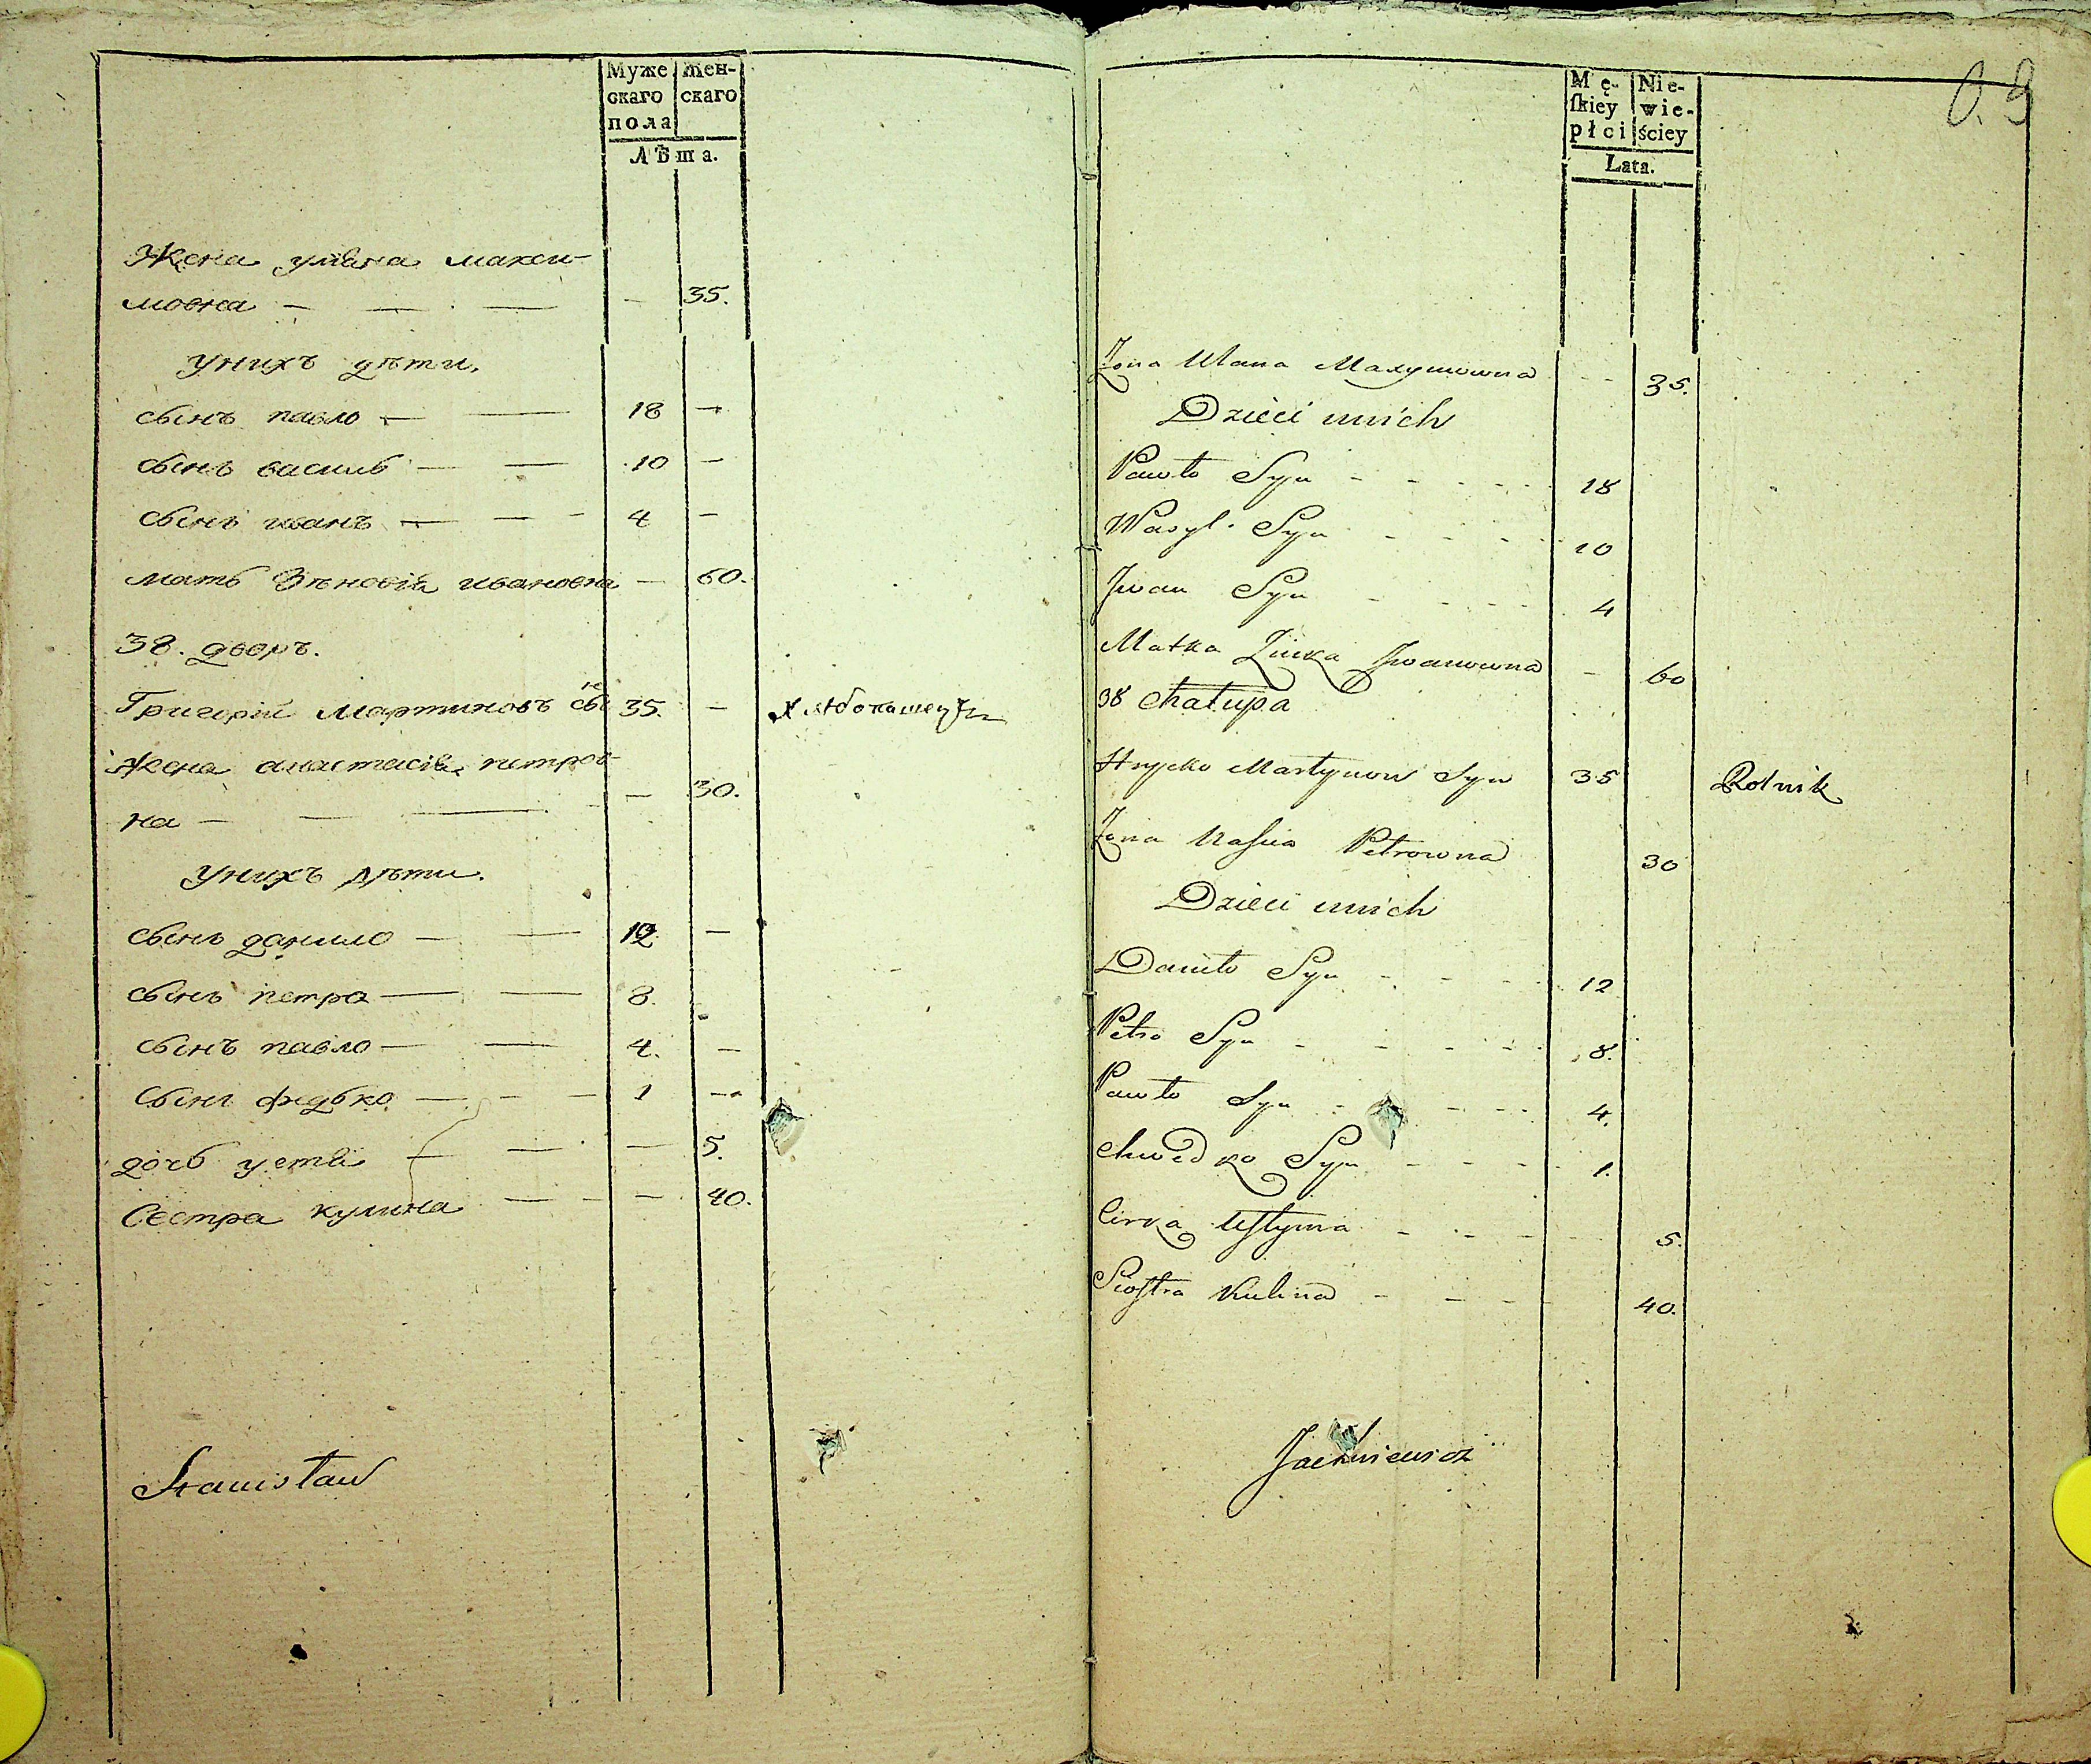 Муже жен-
скаго скаго
пола
Лѣта.
Жена уліана макси-
мовна — — — — 35.
унихъ дѣти.
сынъ павло — — 18 —
сынъ василь — — 10 —
сынъ иванъ — — - 4 —
мать Зѣновія ивановна — 60.
38. дворъ.
Григорій Мартиновъ сынъ 35. —
Жена анастасія петров-
на — — — — 30.
унихъ дѣти.
сынъ данило — — 12 —
сынъ петро — — 8.
сынъ павло — — 4. —
сынъ федько — - — 1 —
дочь устія — — — 5.
Сестра кулина — - — 40.
Stanisław
Mę- Nie-
ſkiey wie-
płci ściey
Lata.
0. 9
Żona Ulana Maxymowna - - 35.
Dzieci unich
Pawło Syn - - - - 18
Wasyl Syn - - - - 10
Jwan Syn - - - - 4
Matka Zinka Jwanowna - 60
38 Chałupa
Hrycko Martynow Syn 35 Rolnik
Żona Naſtia Petrowna 30
Dzieci unich
Daniło Syn - - - 12
Petro Syn - - - - 8.
Pawło Syn - - - 4.
Chwedko Syn - - - - 1.
Cirka Uſtyma - - - - 5.
Sioſtra Kulina - - - 40.
Jachniewicz